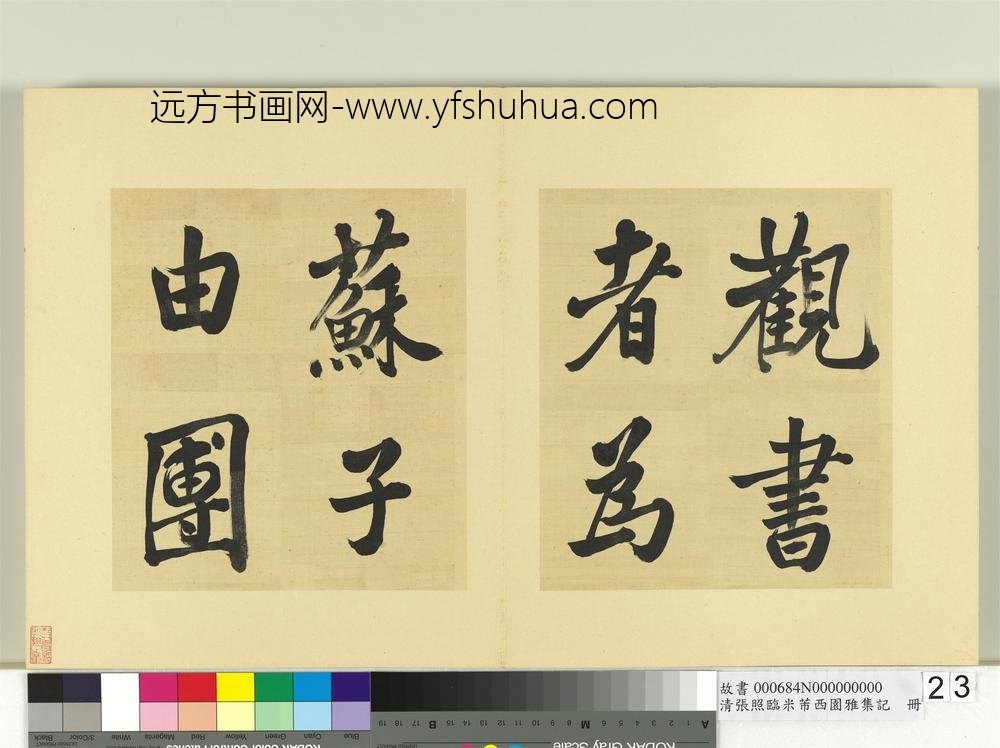 远方书画网-www.yfshuhua.com
觀書
者為
蘇子
由團
故書 000684N000000000
清張照臨米芾西園雅集記 冊
23
Black
3/Color
White
Magenta
Red
Yellow
Green
Cyan
Blue
19 18 17 16 15 14 13 12 11 10 9 8 7 6 5 4 3 2 1
B
M
A
KODAK Color Control Patches
KODAK Gray Scale